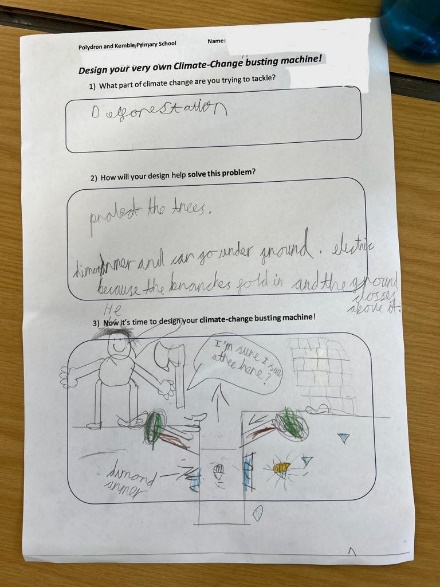 Polydron and Kemble Primary School Name:
Design your very own Climate-Change busting machine!
1) What part of climate change are you trying to tackle?
Deforestation
2) How will your design help solve this problem?
protest the trees.
and can go under ground. electric
because the branches fold in and the ground
closes
above it.
He
3) Now it's time to design your climate-change busting machine!
I'm sure I saw
a tree here?